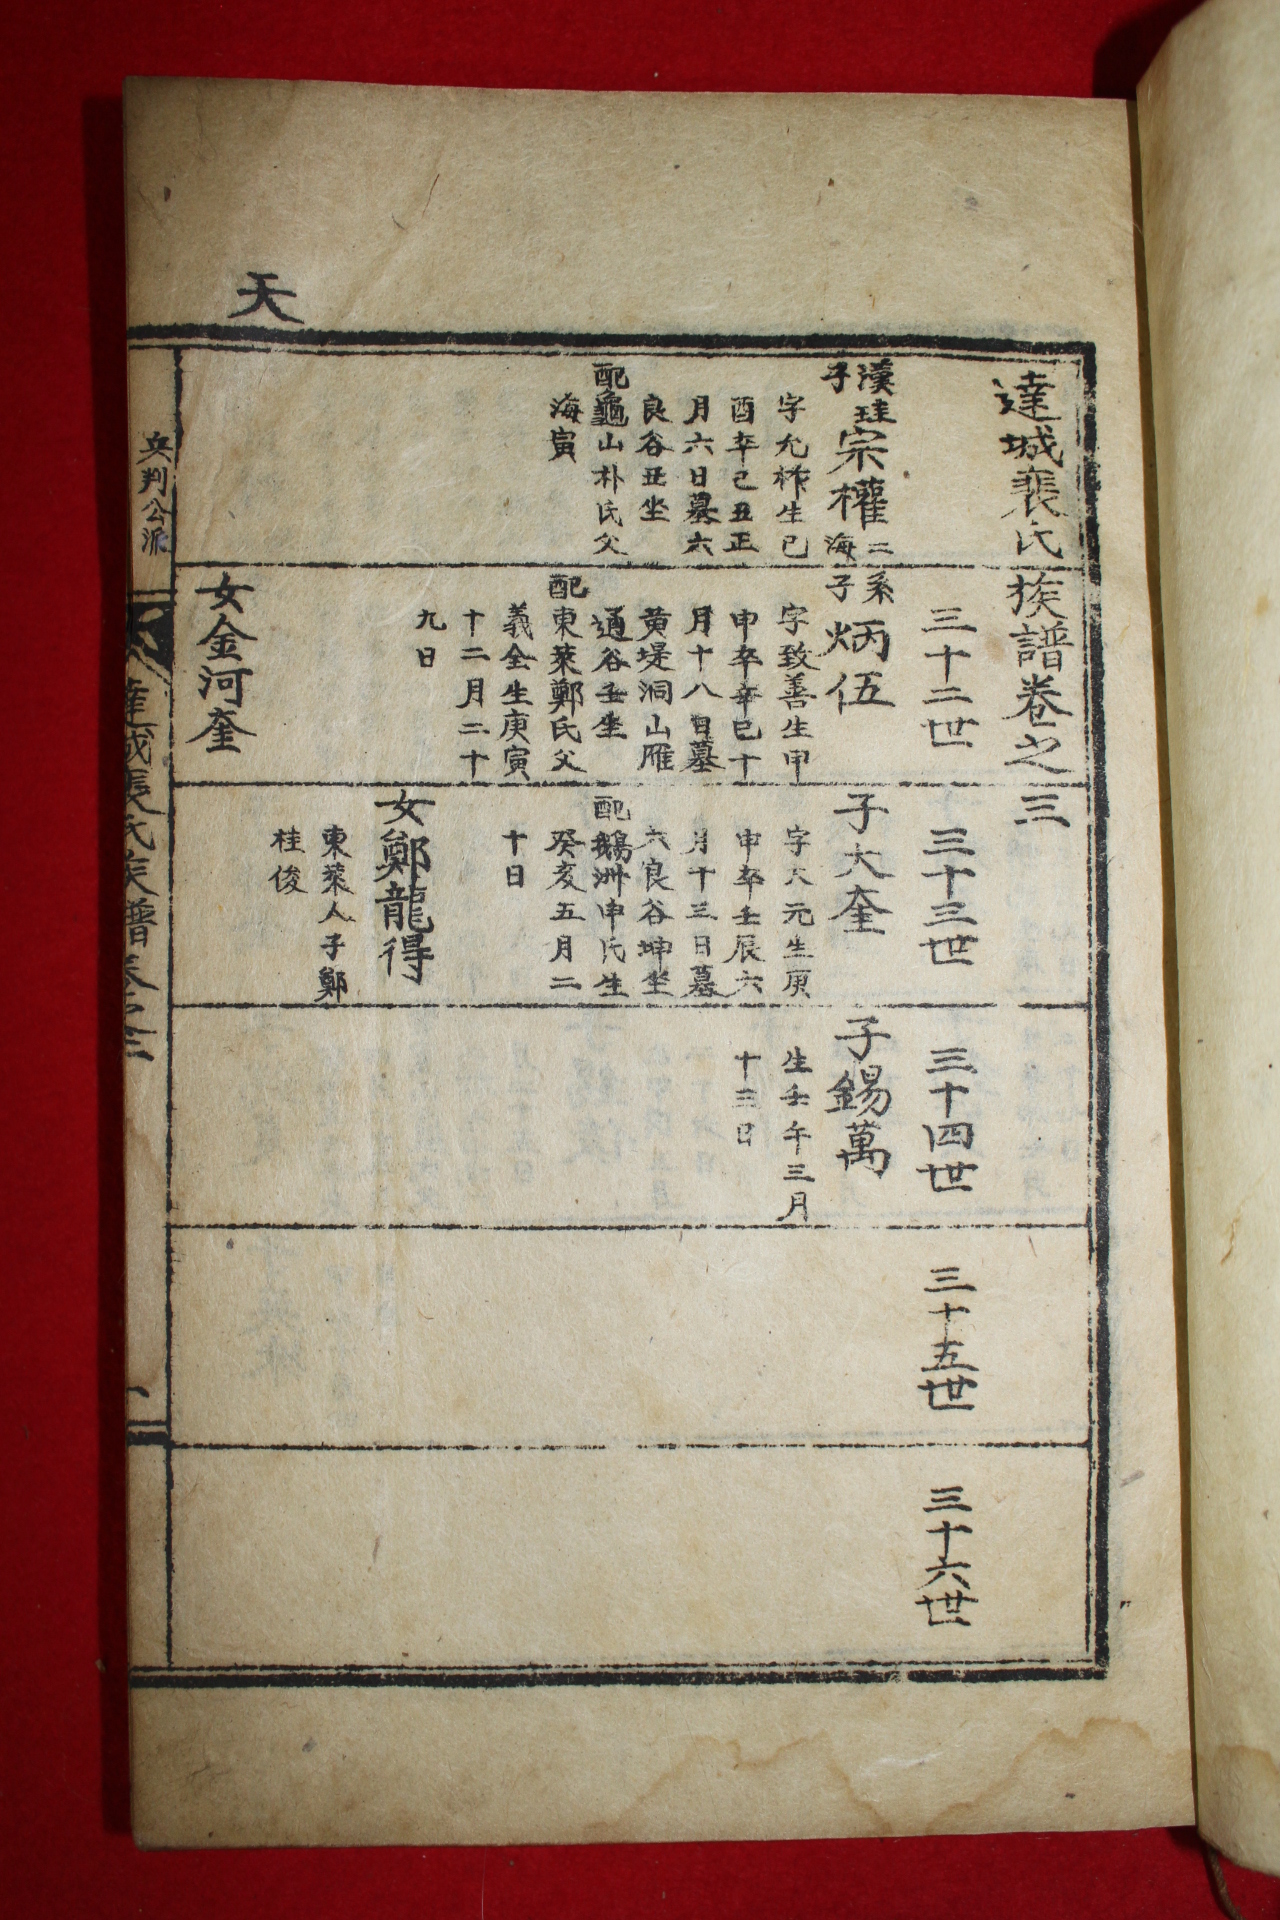 天
達城裴氏族譜卷之三
三十二世
三十三世
三十四世
三十五世
三十六世
漢珪
子
宗權
二
海
字允祚生己
酉卒己丑正
月六日墓六
良谷丑坐
配龜山朴氏父
海寅
系
子
炳伍
字致善生甲
申卒辛巳十
月十八日墓
黄堤洞山雁
通谷壬坐
配東萊鄭氏父
義全生庚寅
十二月二十
九日
女金河奎
子大奎
字大元生庚
申卒壬辰六
月十三日墓
六良谷坤坐
配鵝洲申氏生
癸亥五月二
十日
女鄭龍得
東萊人子鄭
桂俊
子錫萬
生壬午三月
十三日
兵判公派
達城裴氏族譜卷之三